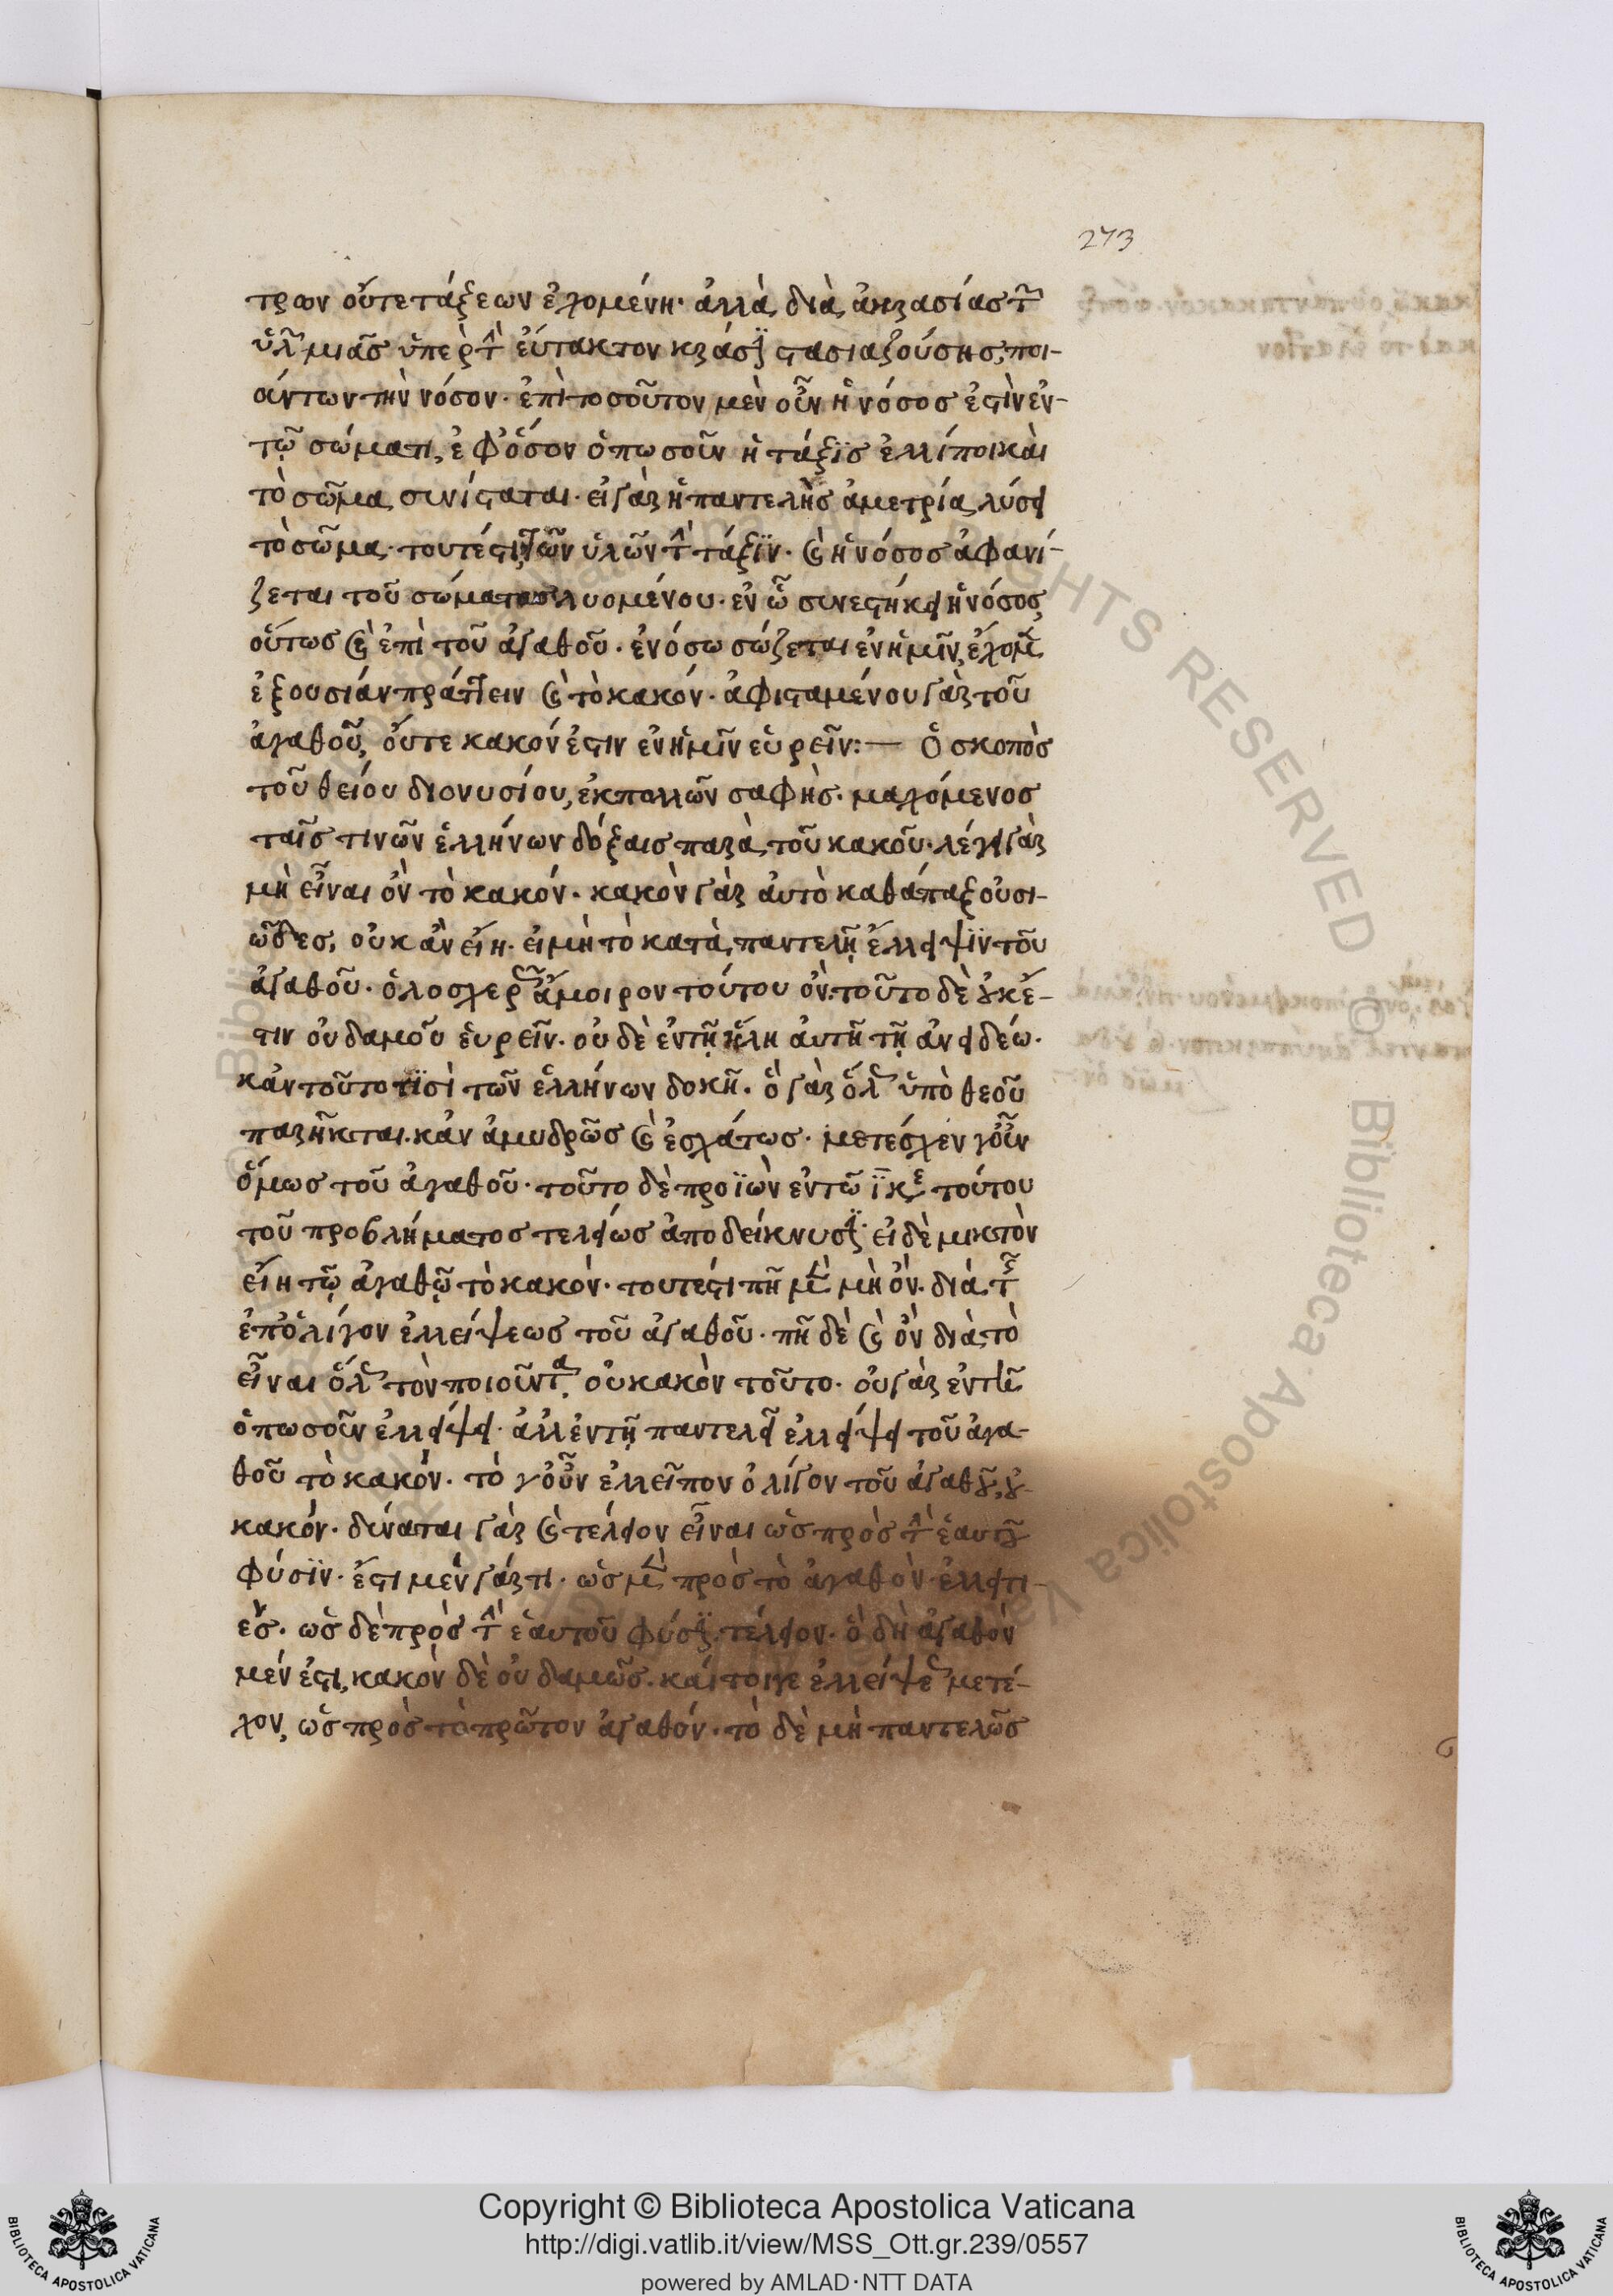 273
τρον οὔτε τάξεων ἐχομένη· ἀλλὰ διὰ ἀκρασίας τ
ὕλ μιᾶς ὑπὲρ τ εὔτακτον κράσιν στασιαζούσης, ποι-
άντων τὴν νόσον· ἐπὶ τοσοῦτον μὲν οὖν ἡ νόσος ἐστὶν ἐν-
τῷ σώματι, ἐφ' ὅσον ὁπωσοῦν ἡ τάξις ἐλλίποι καὶ
τὸ σῶμα συνίσταται· εἰ γὰρ ἡ παντελὴς ἀμετρία λύσει
τὸ σῶμα· τουτέστι τῶν ὑλῶν τ τάξιν· καὶ ἡ νόσος ἀφανί-
ζεται τοῦ σώματος λυομένου· ἐν ᾧ συνεστήκει ἡ νόσος
οὕτως καὶ ἐπὶ τοῦ ἀγαθοῦ· ἐν ὅσω σώζεται ἐν ἡμῖν, ἔχομ
ἐξουσίαν πράττειν καὶ τὸ κακόν· ἀφισταμένου γὰρ τοῦ
ἀγαθοῦ, οὔτε κακόν ἐστιν ἐν ἡμῖν εὑρεῖν:— Ὁ σκοπὸς
τοῦ θείου διονυσίου, ἐκ πολλῶν σαφὴς· μαχόμενος
ταῖς τινῶν ἑλλήνων δόξαις παρὰ τοῦ κακοῦ· λέγει γὰρ
μὴ εἶναι ὂν τὸ κακόν· κακὸν γὰρ αὐτὸ καθάπαξ οὐσι-
ῶδες, οὐκ ἂν εἴη· εἰ μὴ τὸ κατὰ παντελῆ ἔλλειψιν τοῦ
ἀγαθοῦ· ὁλοσχερ ἄμοιρον τούτου ὄν· τοῦτο δὲ οὐκ ἔ-
στιν οὐδαμοῦ εὑρεῖν· οὐδὲ ἐν τῇ ὕλη αὐτῆ τῇ ἀνειδέω·
κἂν τοῦτο τισὶ τῶν ἑλλήνων δοκῆ· ὃ γὰρ ὅλ ὑπὸ θεοῦ
παρῆκται· κἂν ἀμυδρῶς καὶ ἐσχάτως· μετέσχεν γοῦν
ὅμως τοῦ ἀγαθοῦ· τοῦτο δὲ προϊὼν ἐν τῶ ικ τούτου
τοῦ προβλήματος τελείως ἀποδείκνυσιν· εἰ δὲ μικτὸν
εἴη τῷ ἀγαθῷ τὸ κακόν· τουτέστι πῆ μ μὴ ὄν· διὰ τ
ἐπ' ὀλίγον ἐλλείψεως τοῦ ἀγαθοῦ· πῆ δὲ καὶ ὂν διὰ τὸ
εἶναι ὅλ τὸν ποιοῦντα, οὐ κακὸν τοῦτο· οὐ γὰρ ἐν τῆ
ὁπωσοῦν ἐλλείψει· ἀλλ' ἐν τῇ παντελεῖ ἐλλείψει τοῦ ἀγα-
θοῦ τὸ κακόν· τὸ γοῦν ἐλλεῖπον ὀλίγον τοῦ ἀγαθοῦ, οὐ
κακόν· δύναται γὰρ καὶ τέλειον εἶναι ὡς πρὸς τ ἑαυτοῦ
φύσιν· ἔστι μὲν γάρ τι· ὡς μ πρὸς τὸ ἀγαθὸν ἐλλειπι-
ες· ὡς δὲ πρὸς τ ἑαυτοῦ φύσιν τέλειον· ὃ δὴ ἀγαθὸν
μέν ἐστι, κακὸν δὲ οὐδαμῶς· καίτοιγε ἐλλείψε μετέ-
χον, ὡς πρὸς τὸ πρῶτον ἀγαθόν· τὸ δὲ μὴ παντελῶς
© Biblioteca Apostolica Vaticana
RIGHTS RESERVED
Copyright © Biblioteca Apostolica Vaticana
http://digi.vatlib.it/view/MSS_Ott.gr.239/0557
powered by AMLAD·NTT DATA
BIBLIOTECA APOSTOLICA VATICANA
BIBLIOTECA APOSTOLICA VATICANA